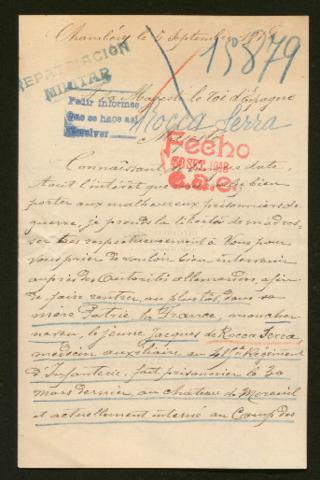 Chambéry le 5 Septembre 1918
15879
REPATRIACIÓN
MILITAR
A Sa Majesté le Roi d'Espagne
Pedir informes
que se hace así
Resolver
Rocca Serra
Fecho
30 SET. 1918
Connaissant
tout l'intérêt que bien
porter aux malheureux prisonniers de
guerre, je prends la liberté de m'adres-
ser très respectueusement à Vous pour
vous prier de vouloir bien intervenir
auprès des Autorités allemandes, afin
de faire rentrer, au plus tôt, dans sa
mère Patrie la France, mon cher
neveu, le jeune Jacques de Rocca Serra,
médecin auxiliaire au Régiment
d'Infanterie, fait prisonnier le 30
mars dernier, au château de Moreuil
et actuellement interné au Camp des